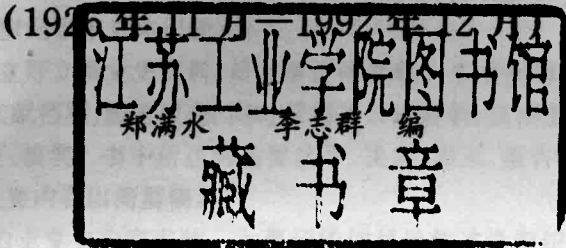 (1926年11月—1992年12月)
江苏工业学院图书馆
郑满水 李志群 编
藏书章